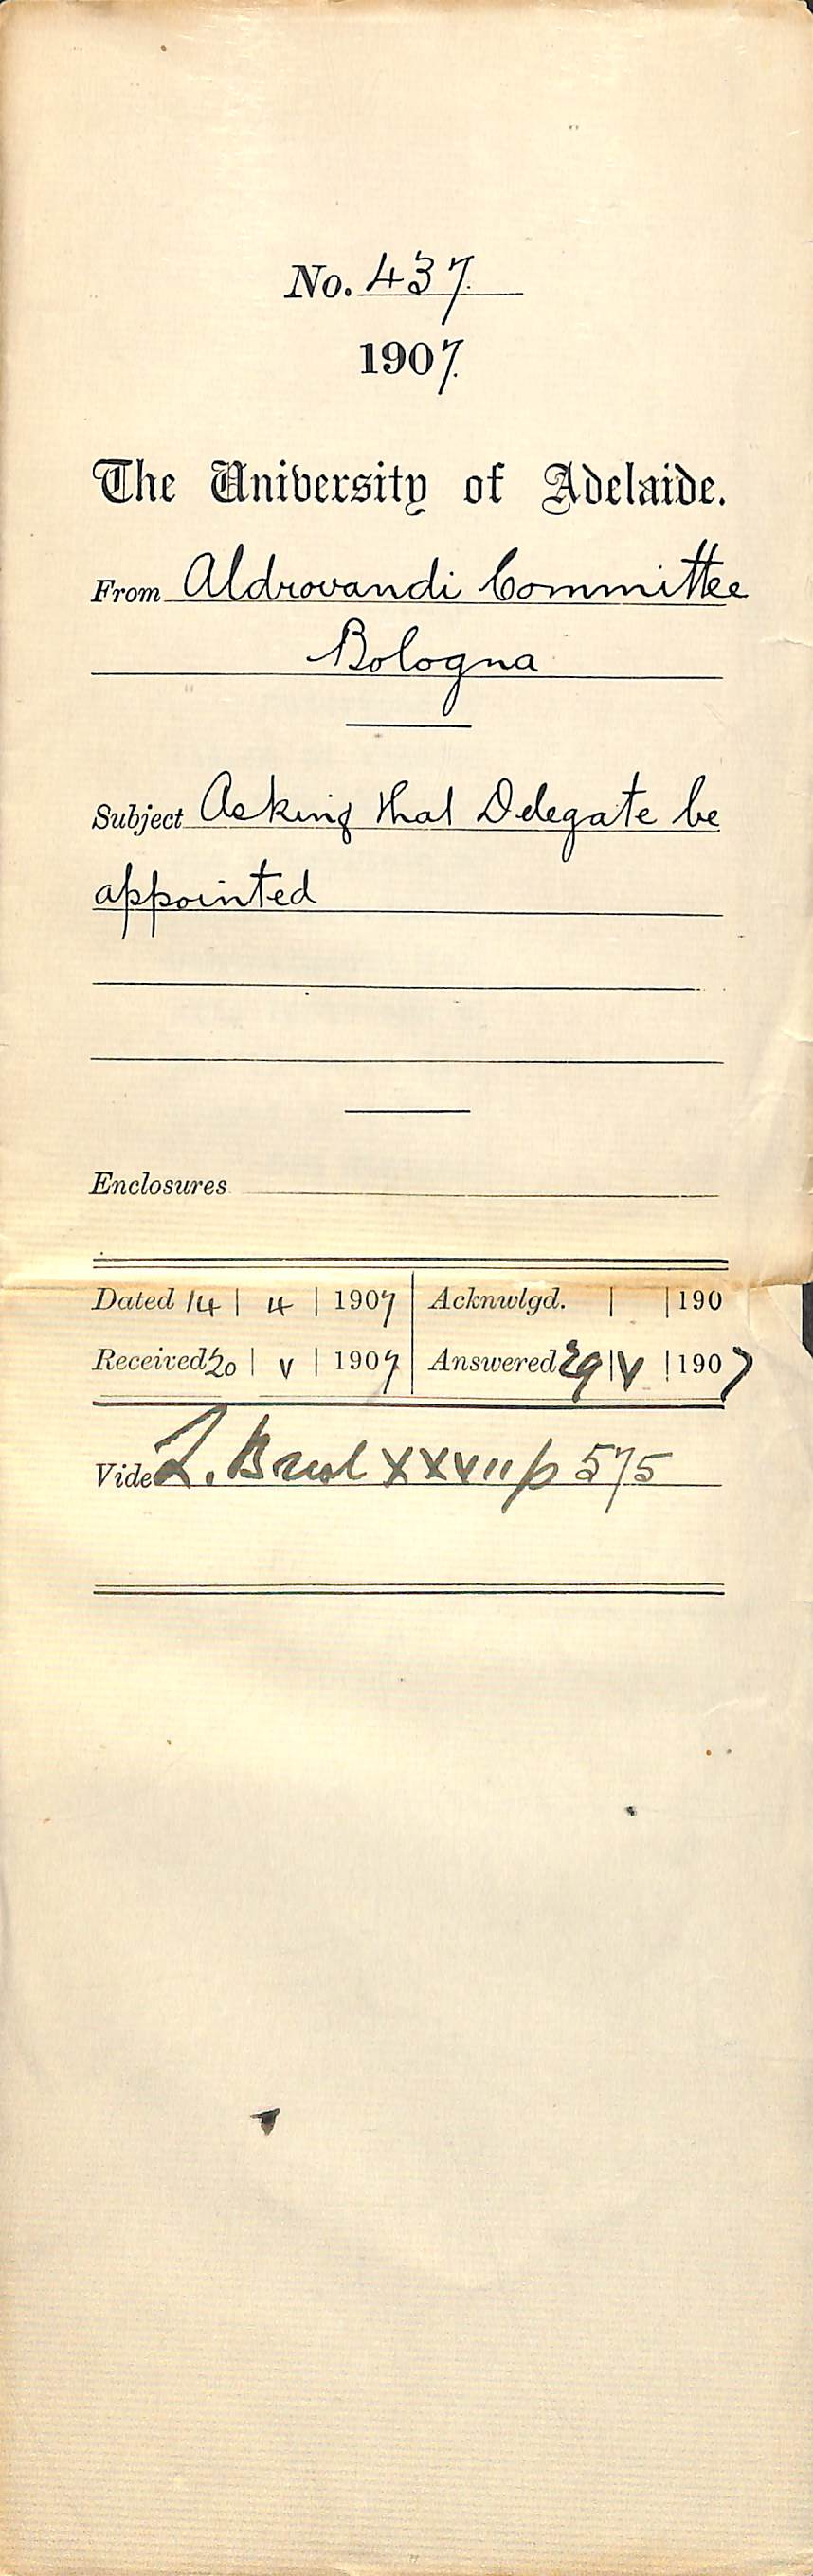 No. 437.
1907.
The University of Adelaide.
From Aldrovandi Committee
Bologna
Subject Asking that Delegate be
appointed
Enclosures
Dated 14 | 4 | 1907 Acknwlgd. | | 190
Received 20 | V | 1907 Answered 29 | V | 1907
Vide L. XXVII p 575